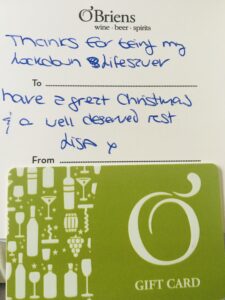 O'Briens
wine · beer · spirits
Thanks for being my
lockdown lifesaver
To
have a great Christmas
& a well deserved rest
Lisa x
From
O'
GIFT CARD